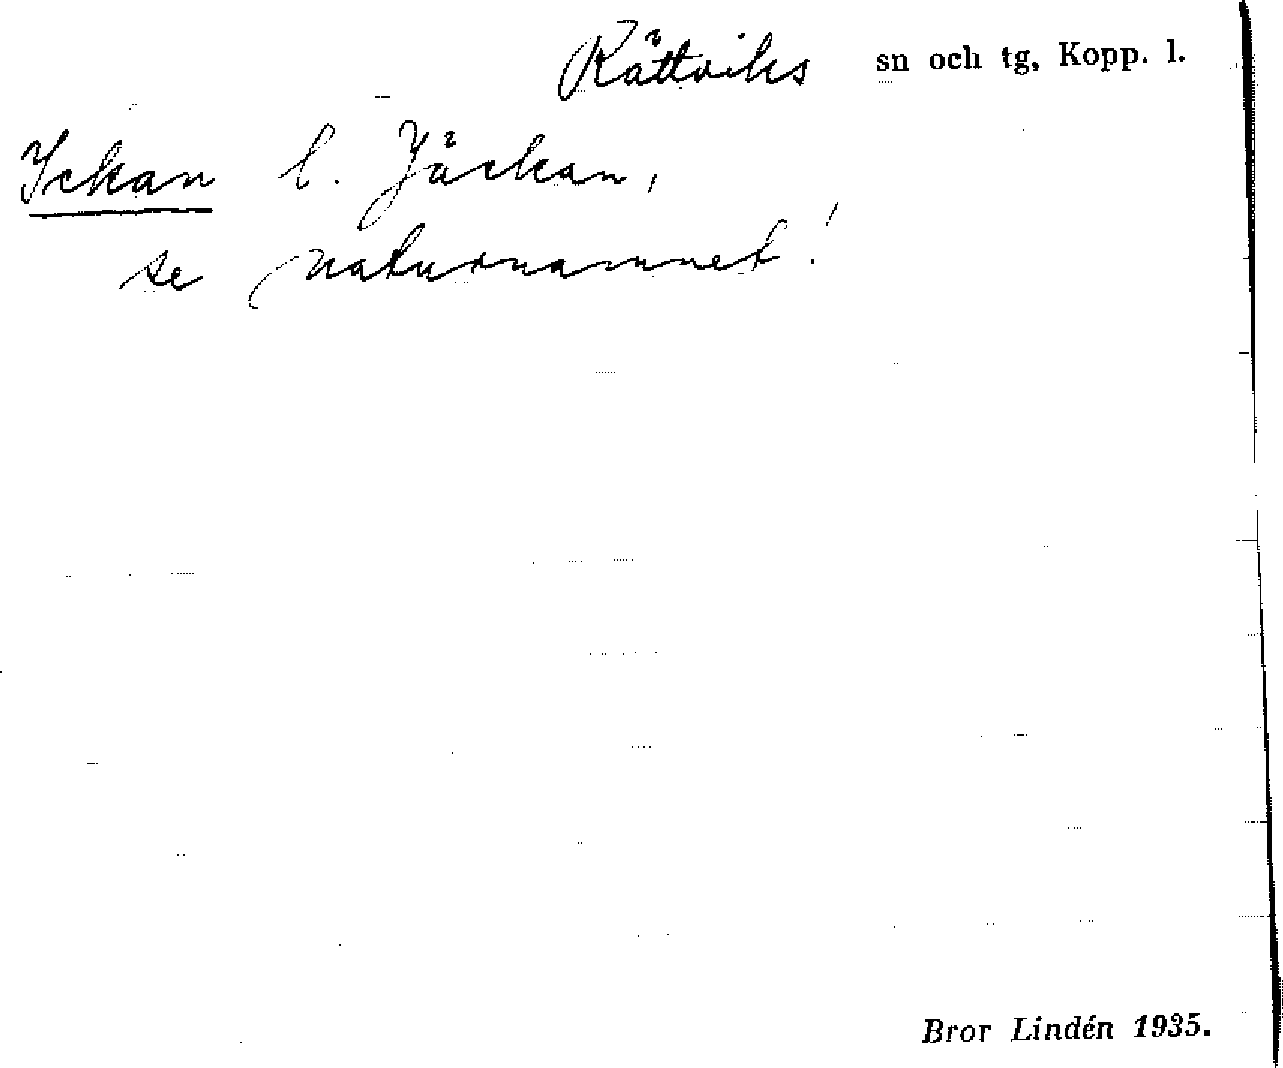 Rättviks sn och tg, Kopp. l.
Ickan l. Jäckan,
se naturnamnet!
Bror Lindén 1935.